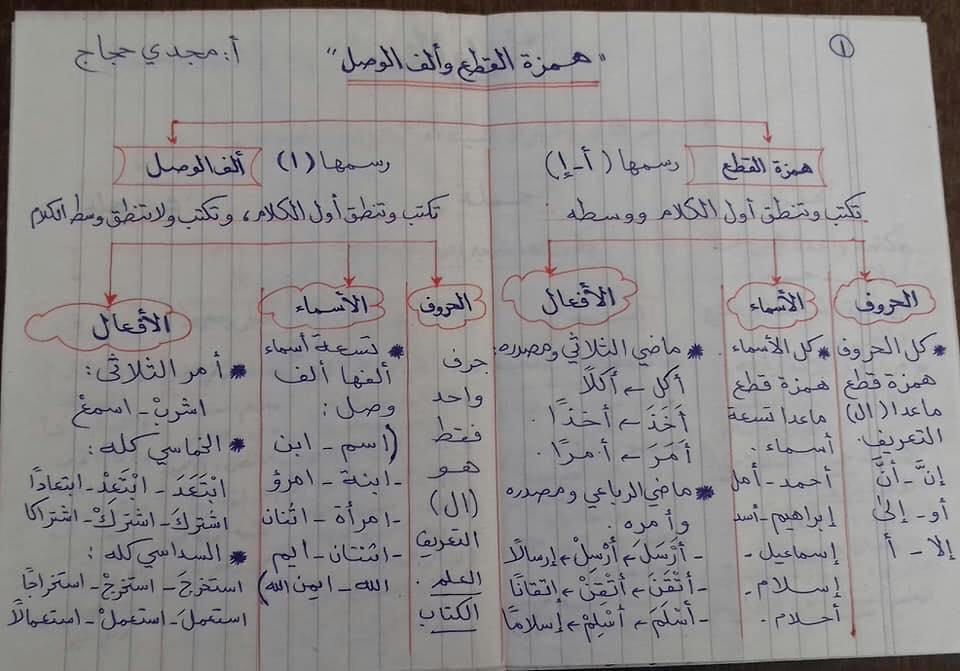 ١
" همزة القطع وألف الوصل "
أ: مجدي حجاج
همزة القطع
رسمها (أ - إ)
تكتب وتنطق أول الكلام ووسطه
الحروف
* كل الحروف
همزة قطع
ماعدا (ال)
التعريف.
إنَّ - أنَّ
أو - إلى
إلا - أ
الأسماء
* كل الأسماء
همزة قطع
ماعدا تسعة
أسماء.
أحمد - أمل
إبراهيم - أسد
إسماعيل -
إسلام -
أحلام.
الأفعال
* ماضي الثلاثي ومصدره:
أكل ← أكلًا
أَخَذَ ← أخذًا.
أَمَرَ ← أمرًا.
* ماضي الرباعي ومصدره
وأمره.
- أرْسَلَ ← أرْسِلْ ← إرسالًا
- أتْقَنَ ← أتْقنْ ← إتقانًا
- أسْلَمَ ← أسْلِمْ ← إسلامًا
ألف الوصل
رسمها (ا)
تكتب وتنطق أول الكلام، وتكتب ولا تنطق وسط الكلام
الحروف
حرف
واحد
فقط
هو
(ال)
التعريف
العلم.
الكتاب
الأسماء
* تسعة أسماء
ألفها ألف
وصل:
(اسم - ابن
- ابنة - امرؤ
- امرأة - اثنان
- اثنتان - ايم
الله - ايمن الله)
الأفعال
* أمر الثلاثى:
اشربْ - اسمعْ
* الخماسي كله:
ابْتَعَدَ - ابْتَعِدْ - ابتعادًا
اشتركَ - اشتركْ - اشتراكا
* السداسي كله:
استخرجَ - استخرجْ - استخراجًا
استعملَ - استعملْ - استعمالًا